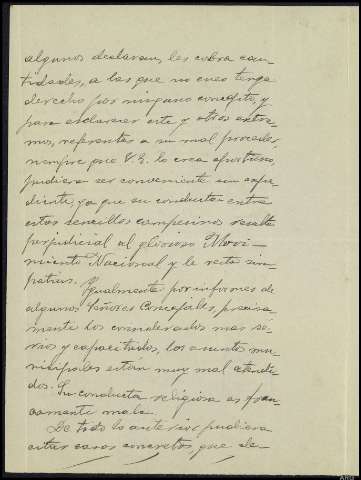 algunos declaran, les cobra can-
tidades, a las que no creo tenga
derecho por ningun concepto, y
para esclarecer este y otros extre-
mos, referentes a su mal proceder,
siempre que V.E. lo crea oportuno,
pudiera ser conveniente un expe-
diente, ya que su conducta entre
estos sencillos campesinos resulta
perjudicial al glorioso Movi-
miento Nacional y le resta sim-
patias.
Igualmente por informes de
algunos Señores Concejales, precisa-
mente los considerados mas se-
rios y capacitados, los asuntos mu-
nicipales estan muy mal atendi-
dos. Su conducta religiosa es fran-
camente mala.
De todo lo anterior pudiera
citar casos concretos, que de-